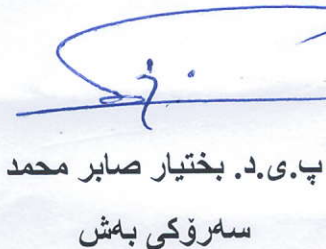 پ.ی.د. بختیار صابر محمد
سەرۆکی بەش